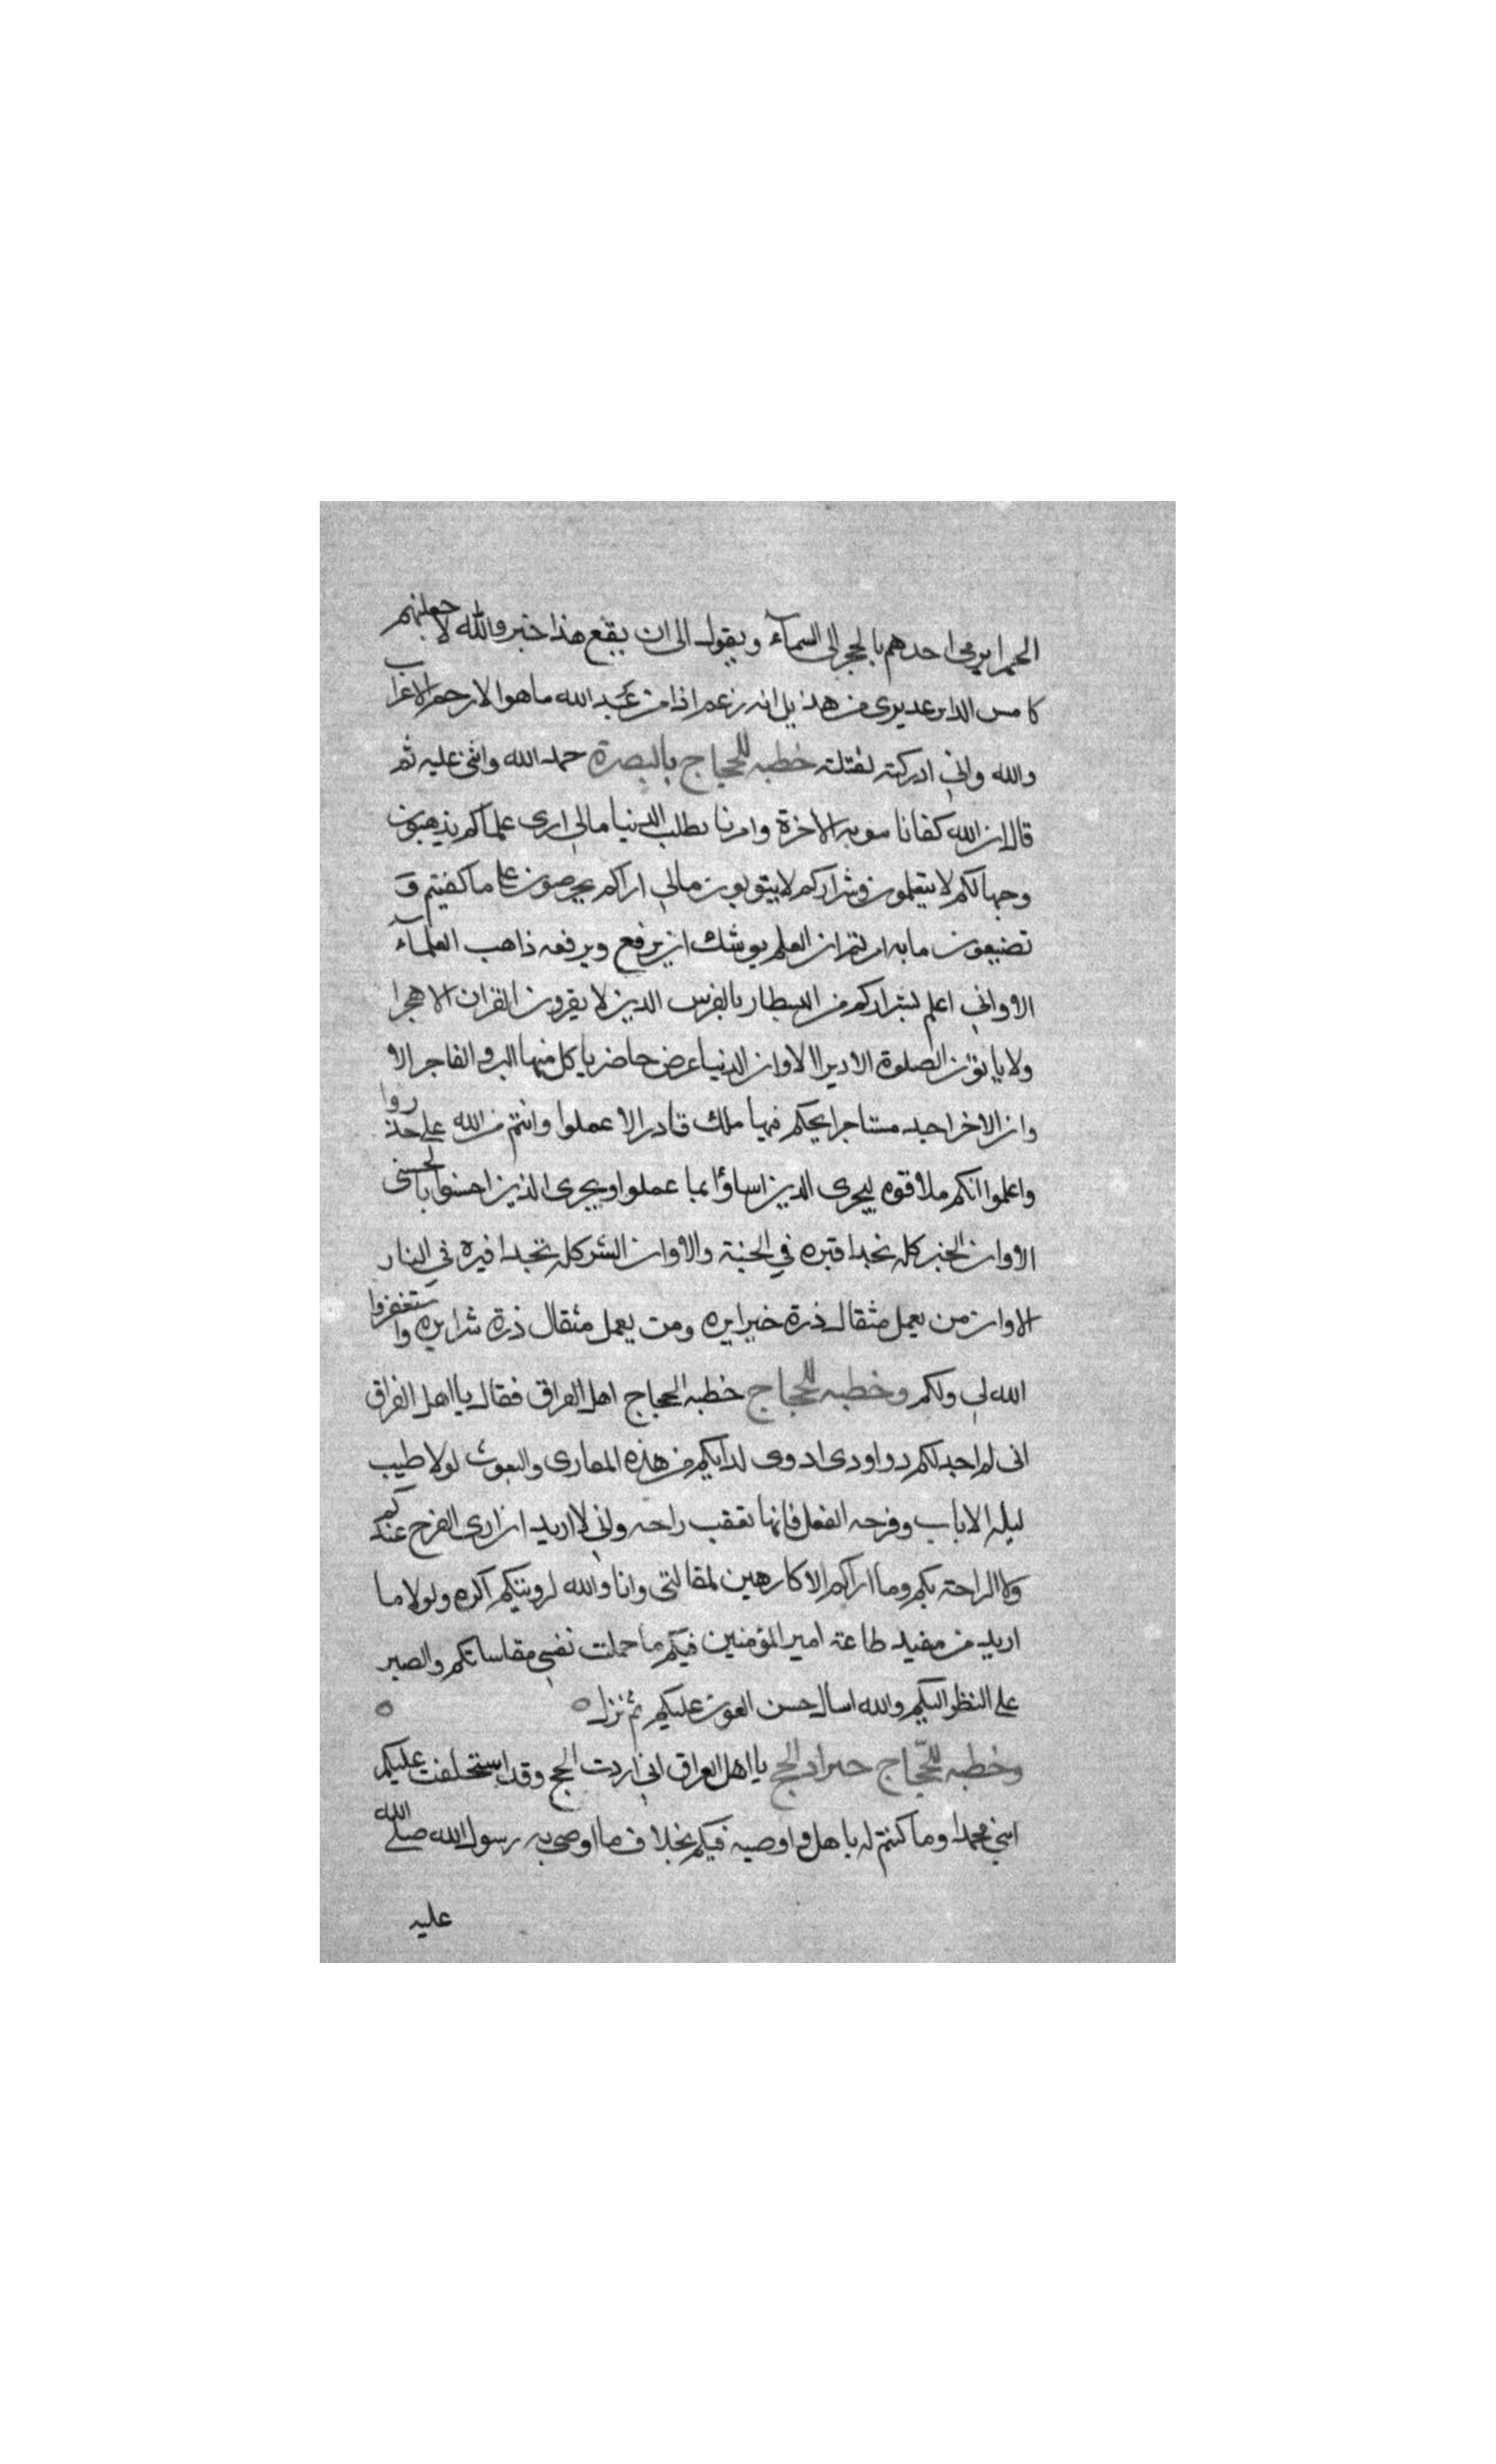 الحمرا يرمى احدهم بالحجر الى السمآء ويقول الى ان يقع هذا خبر والله لاجعلنهم
كامس الدابر عديرى من هذيل انه زعم اذا من عند الله ما هو الا رجز الاعراب
والله واني ادركته لقتلته خطبه للحجاج بالبصرة حمد الله واثنى عليه ثم
قال ان الله كفانا مونه الاخرة وامرنا بطلب الدنيا مالي ارى علماكم يذهبون
وجهالكم لا يتعلمون وشراركم لا يتوبون مالي اراكم تحرصون على ما كفيتم و
تضيعون ما به امرتم ان العلم يوشك ان يرفع ويرفعه ذاهب العلمآء
الا واني اعلم بشراركم من البيطار بالفرس الدين لا يقرون القران الا هجرا
ولا ياتون الصلوة الا دبرا الا وان الدنيا عرض حاضر ياكل منها البر والفاجر الا
وان الاخر اجد مستاجر ايحكم فيها ملك قادر الا عملوا وانتم من الله على حذروا
واعلموا انكم ملاقوه ليجرى الدين اساؤا بما عملوا ويجرى الذين احسنوا بالحسنى
الا وان الخير كله بحدافيره في الجنة والا وان الشر كله بحدافيره في النار
الا وان من يعمل مثقال ذرة خيرا يره ومن يعمل مثقال ذرة شرا يره واستغفروا
الله لي ولكم وخطبه للحجاج خطبه الحجاج اهل العراق فقال يا اهل العراق
انى لم اجد لكم دوا ودى ادوى لدايكم من هذه المعارى والبعوث لولا طيب
ليله الاياب وفرحه القفل فانها تعقب راحه واني لا اريد ان ارى الفرح عندكم
ولا الراحة بكم وما اراكم الا كارهين لمقالتى وانا والله لرويتكم اكره ولولا ما
اريد من مفيد طاعة امير المؤمنين فيكم ما حملت نفسي مقاساتكم والصبر
على النظر اليكم والله اسال حسن العون عليكم ثم نزل
وخطبه للحجاج حين اراد الحج يا اهل العراق اني اردت الحج وقد استخلفت عليكم
ابني محمدا وما كنتم له باهل واوصيه فيكم بخلاف ما اوصى به رسول الله صلى الله
عليه